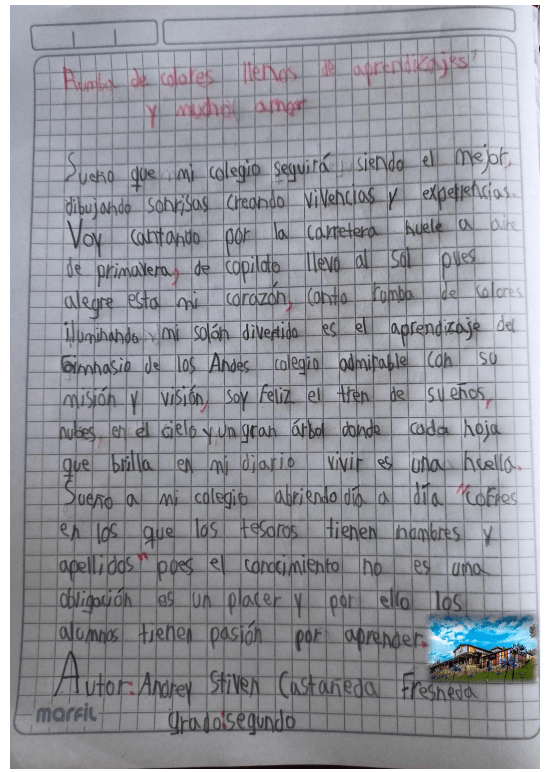 Rumba de colores llenos de aprendizajes
y mucho amor
Sueño que mi colegio seguirá siendo el mejor,
dibujando sonrisas creando vivencias y experiencias.
Voy cantando por la carretera huele a aire
de primavera, de copiloto llevo al sol pues
alegre esta mi corazón, canto rumba de colores
iluminando mi salón divertido es el aprendizaje del
Gimnasio de los Andes colegio admirable con su
misión y visión, soy feliz el tren de sueños,
nubes en el cielo y un gran árbol donde cada hoja
que brilla en mi diario vivir es una huella.
Sueño a mi colegio abriendo día a día "cofres
en los que los tesoros tienen nombres y
apellidos" pues el conocimiento no es una
obligación es un placer y por ello los
alumnos tienen pasión por aprender.
Autor: Andrey Stiven Castañeda Fresneda
grado:segundo
marfil